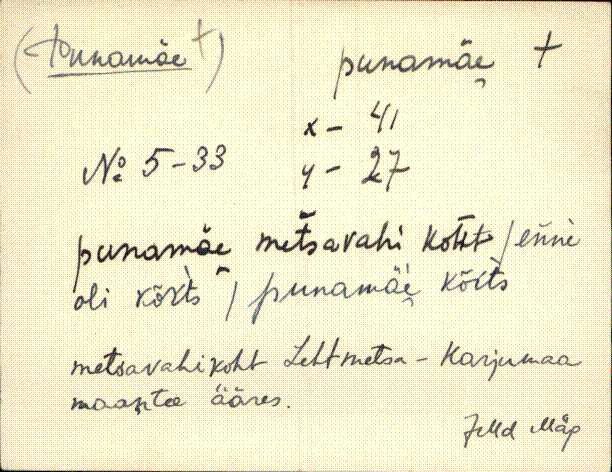 (Punamäe +)
punamäe +
x - 41
№ 5-33
y - 27
punamäe metsavahi koht / enne
oli kõrts / punamäe kõrts
metsavahikoht Lehtmetsa - Karjumaa
maantee ääres.